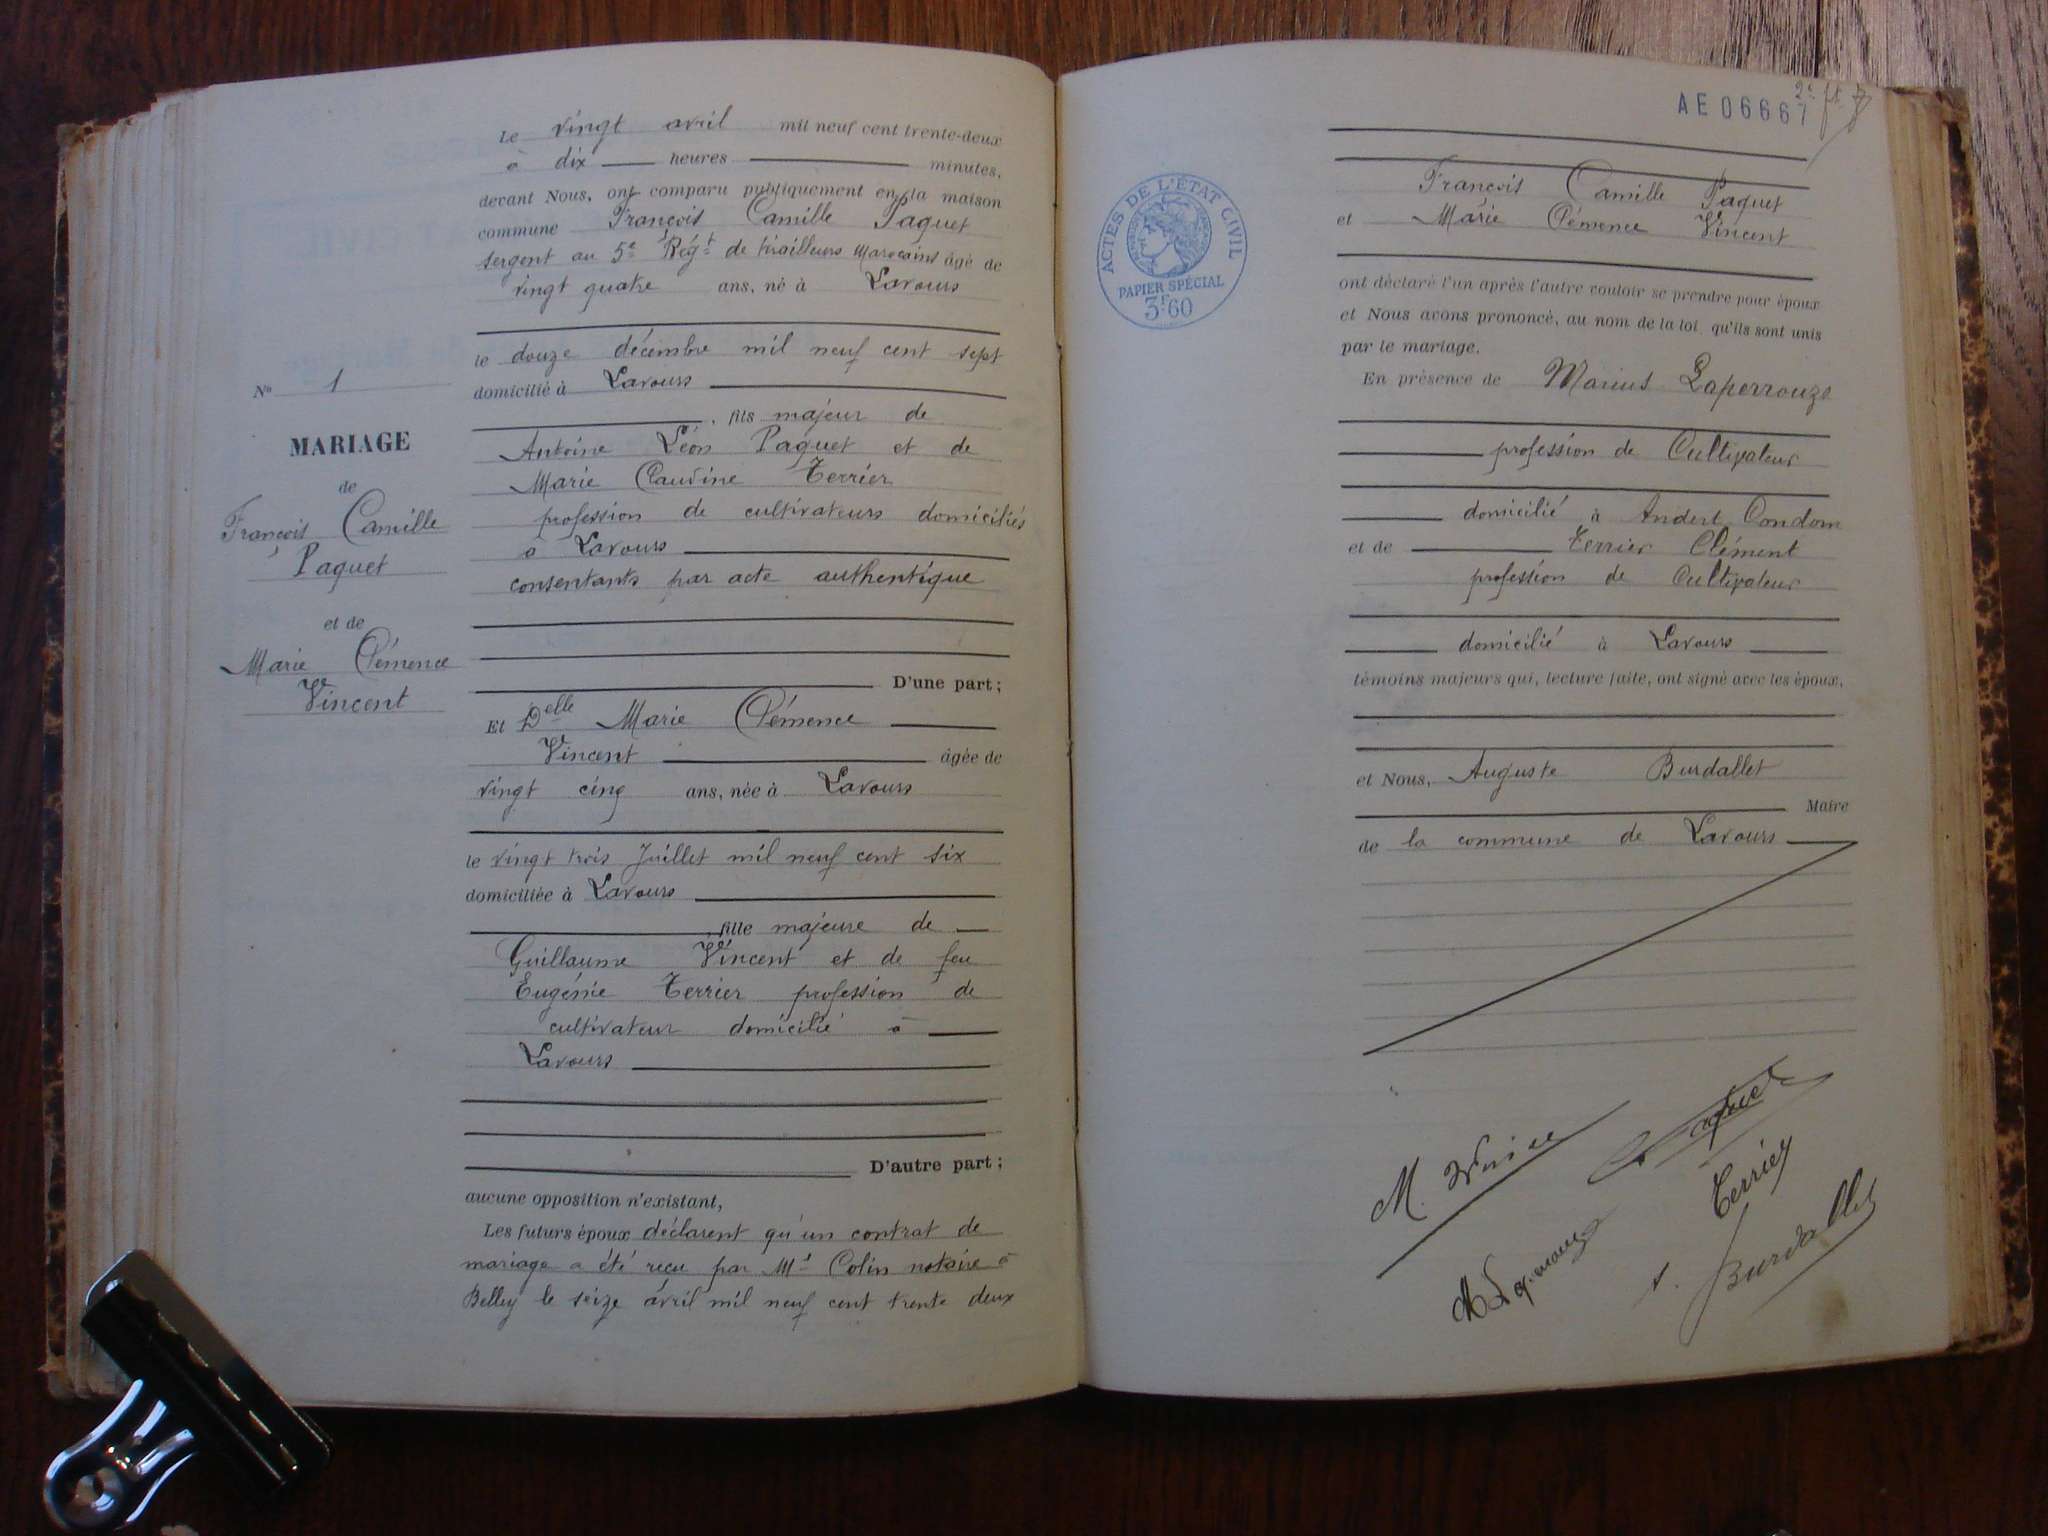 Le vingt avril mil neuf cent trente-deux
à dix heures minutes,
devant Nous, ont comparu publiquement en la maison
commune François Camille Paquet
sergent au 5e Régt de tirailleurs Marocains âgé de
vingt quatre ans, né à Lavours
le douze décembre mil neuf cent sept
domicilié à Lavours
, fils majeur de
Antoine Léon Paquet et de
Marie Claudine Terrier
profession de cultivateurs domiciliés
à Lavours
consentants par acte authentique
D'une part;
Et Delle Marie Clémence
Vincent âgée de
vingt cinq ans, née à Lavours
le vingt trois Juillet mil neuf cent six
domiciliée à Lavours
, fille majeure de
Guillaume Vincent et de feu
Eugénie Terrier profession de
cultivateur domicilié à
Lavours
D'autre part;
aucune opposition n'existant,
Les futurs époux déclarent qu'un contrat de
mariage a été reçu par Me Colin notaire à
Belley le seize avril mil neuf cent trente deux
No 1
MARIAGE
de
François Camille
Paquet
et de
Marie Clémence
Vincent
AE 06667
2e ft
ACTES DE L'ÉTAT CIVIL
PAPIER SPÉCIAL
3F60
François Camille Paquet
et Marie Clémence Vincent
ont déclaré l'un après l'autre vouloir se prendre pour époux
et Nous avons prononcé, au nom de la loi qu'ils sont unis
par le mariage.
En présence de Marius Laperrouze
profession de Cultivateur
domicilié à Andert Condom
et de Terrier Clément
profession de Cultivateur
domicilié à Lavours
témoins majeurs qui, lecture faite, ont signé avec les époux,
et Nous, Auguste Burdallet
Maire
de la commune de Lavours
Paquet
M.
Terrier
Burdallet